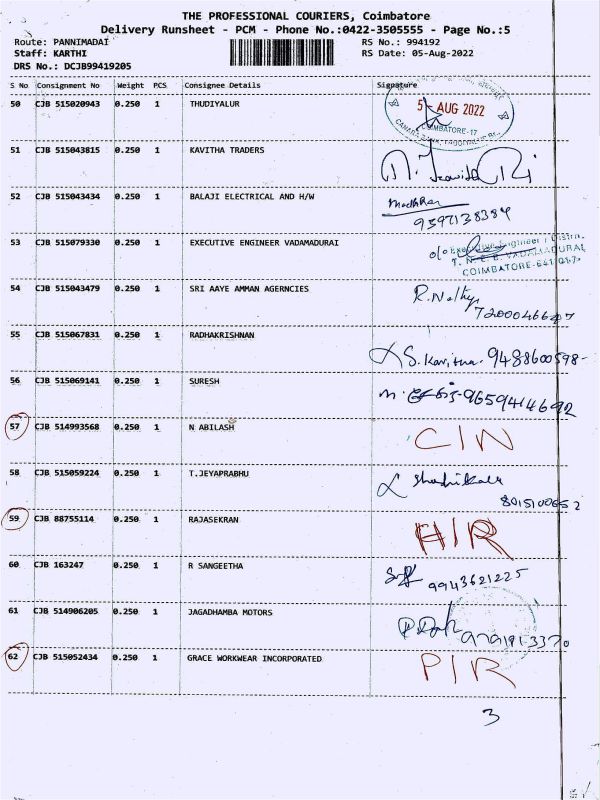 THE PROFESSIONAL COURIERS, Coimbatore
Delivery Runsheet - PCM - Phone No.:0422-3505555 - Page No.:5
Route: PANNIMADAI RS No.: 994192
Staff: KARTHI RS Date: 05-Aug-2022
DRS No.: DCJB99419205
S No Consignment No Weight PCS Consignee Details Signature
50 CJB 515020943 0.250 1 THUDIYALUR 5 AUG 2022
COIMBATORE-17
CANARA BANK,
51 CJB 515043815 0.250 1 KAVITHA TRADERS
52 CJB 515043434 0.250 1 BALAJI ELECTRICAL AND H/W
9397138384
53 CJB 515079330 0.250 1 EXECUTIVE ENGINEER VADAMADURAI Executive Engineer / Distn.
T. N. E. B. VADAMADURAI
COIMBATORE-641 017
54 CJB 515043479 0.250 1 SRI AAYE AMMAN AGERNCIES
55 CJB 515067831 0.250 1 RADHAKRISHNAN S. Kavitha. 9488600598-
56 CJB 515069141 0.250 1 SURESH
57 CJB 514993568 0.250 1 N ABILASH C/N
58 CJB 515059224 0.250 1 T.JEYAPRABHU
59 CJB 88755114 0.250 1 RAJASEKRAN H/R
60 CJB 163247 0.250 1 R SANGEETHA 9943621225
61 CJB 514906205 0.250 1 JAGADHAMBA MOTORS
62 CJB 515052434 0.250 1 GRACE WORKWEAR INCORPORATED P/R
3